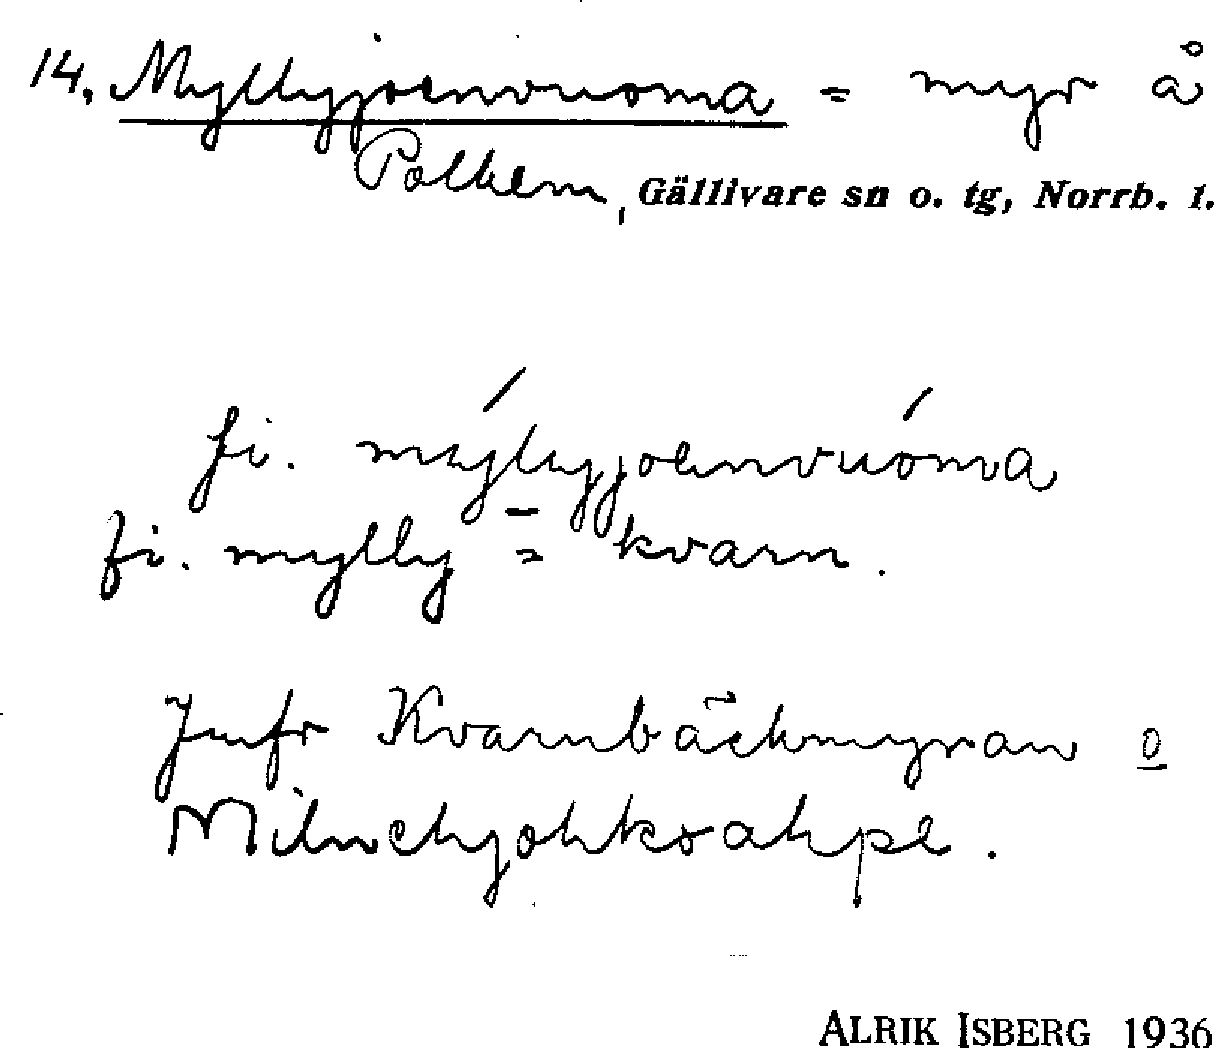 14. Myllyjoenvuoma = myr å
Polkem, Gällivare sn o. tg, Norrb. l.
fi. mýllyjoenvuóma
fi. mylly = kvarn.
Jmfr Kvarnbäckmyran o
Milnehjohksahpe.
ALRIK ISBERG 1936